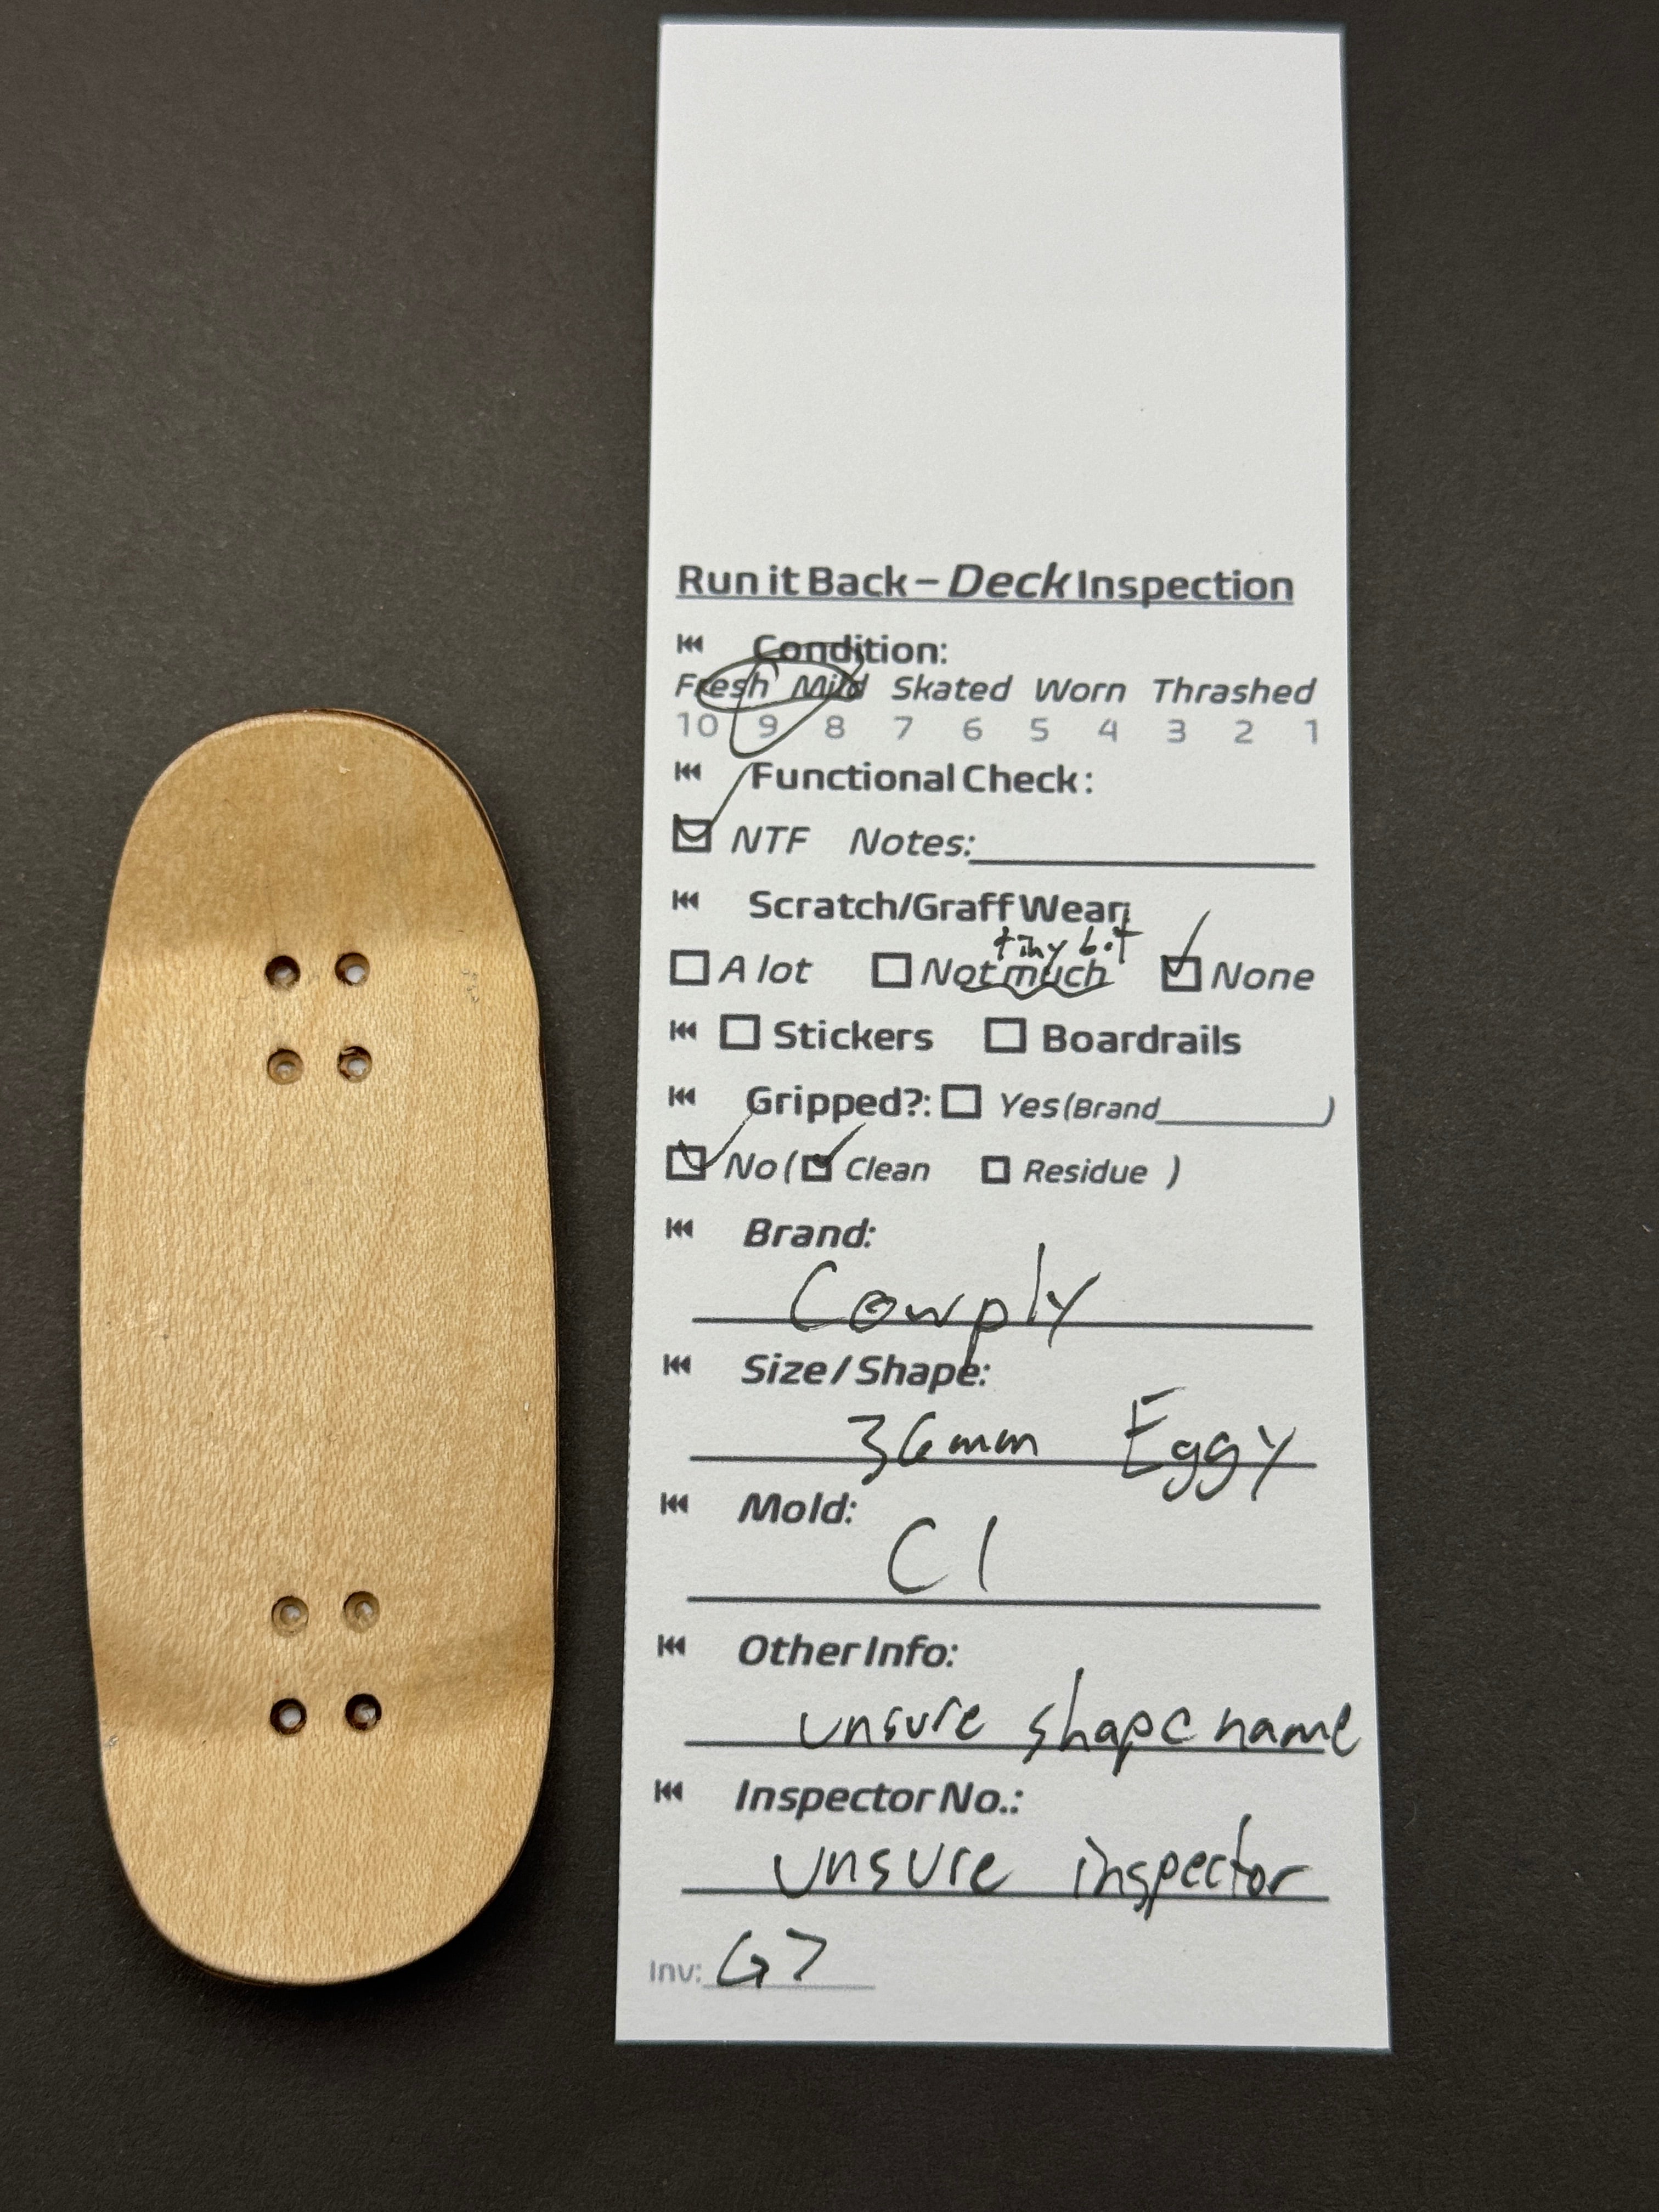 Run it Back – Deck Inspection
Condition:
Fresh Mild Skated Worn Thrashed
10 9 8 7 6 5 4 3 2 1
Functional Check:
NTF Notes:
Scratch/Graff Wear:
tiny bit
A lot Not much None
Stickers Boardrails
Gripped?: Yes (Brand )
No ( Clean Residue )
Brand:
Cowply
Size / Shape:
36mm Eggy
Mold:
C1
Other Info:
unsure shape name
Inspector No.:
unsure inspector
Inv: G7